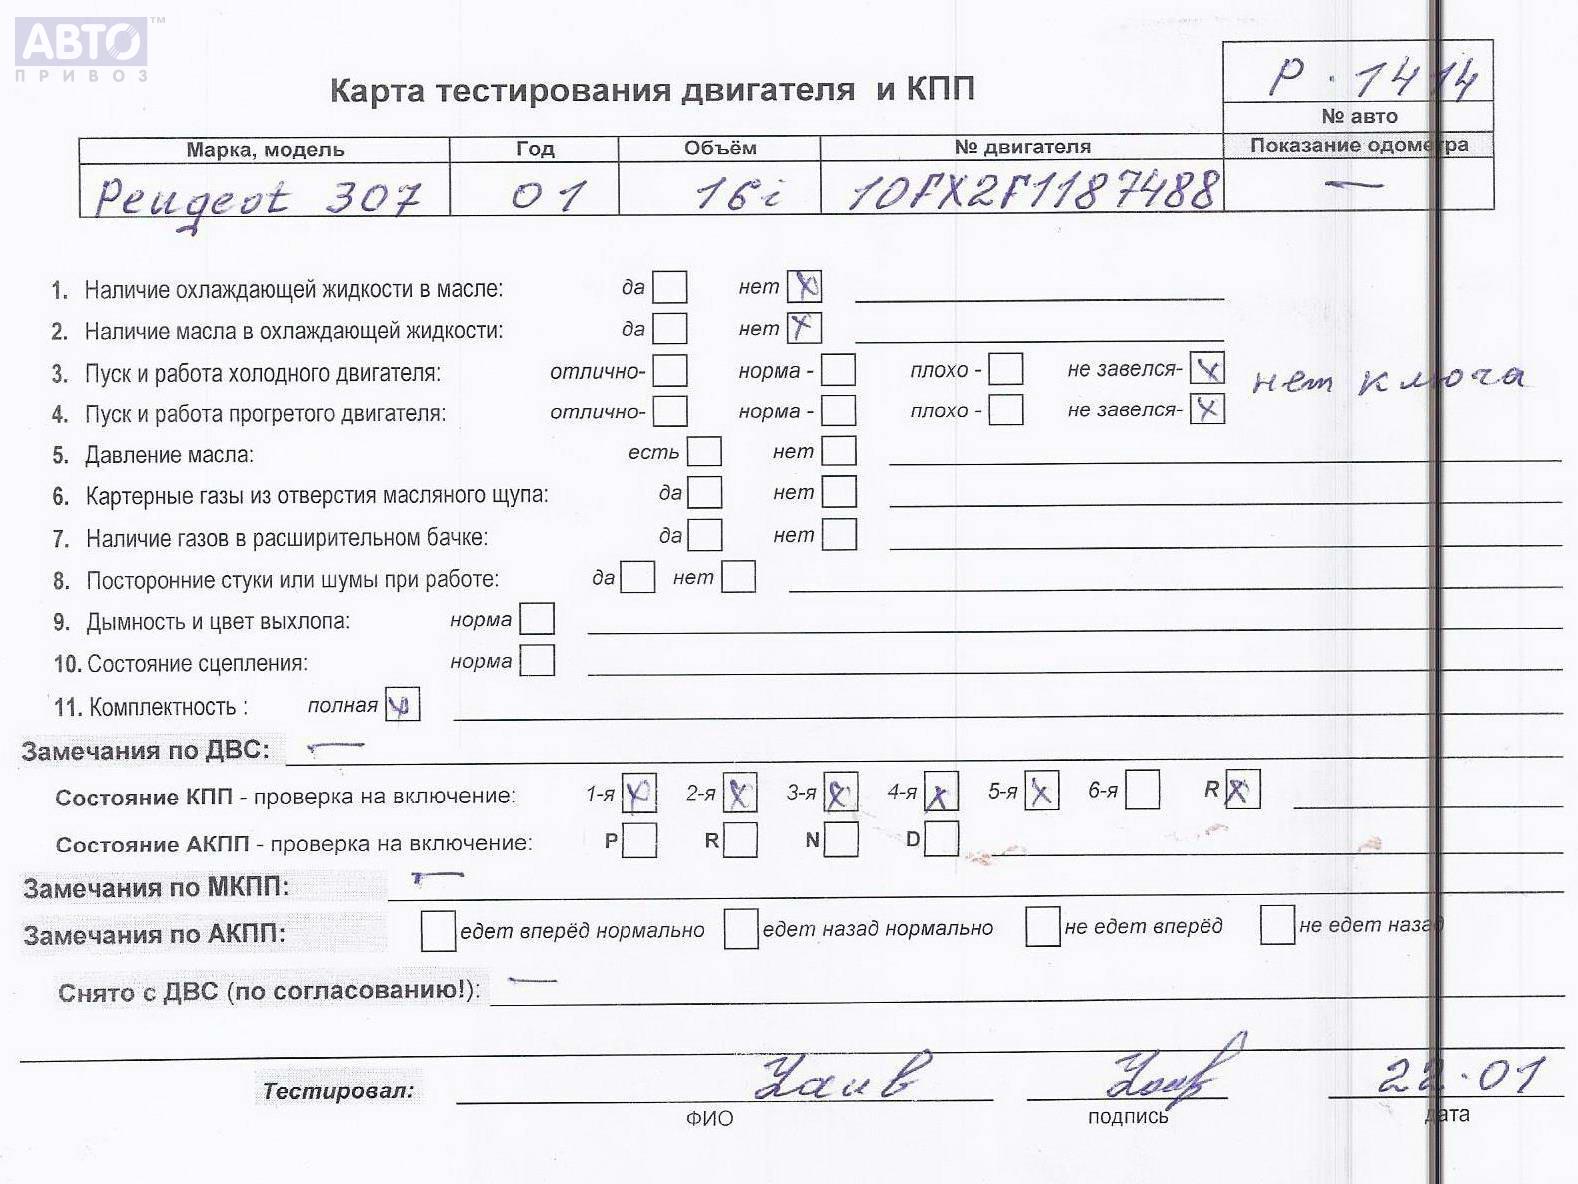 АВТО™
ПРИВОЗ
Р. 1414
Карта тестирования двигателя и КПП
№ авто
Марка, модель Год Объём № двигателя Показание одометра
Peugeot 307 01 16i 10FX2F1187488 —
1. Наличие охлаждающей жидкости в масле: да нет X
2. Наличие масла в охлаждающей жидкости: да нет X
3. Пуск и работа холодного двигателя: отлично- норма - плохо - не завелся- X нет ключа
4. Пуск и работа прогретого двигателя: отлично- норма - плохо - не завелся- X
5. Давление масла: есть нет
6. Картерные газы из отверстия масляного щупа: да нет
7. Наличие газов в расширительном бачке: да нет
8. Посторонние стуки или шумы при работе: да нет
9. Дымность и цвет выхлопа: норма
10. Состояние сцепления: норма
11. Комплектность : полная X
Замечания по ДВС: —
Состояние КПП - проверка на включение: 1-я X 2-я X 3-я X 4-я X 5-я X 6-я R X
Состояние АКПП - проверка на включение: P R N D
Замечания по МКПП: —
Замечания по АКПП: едет вперёд нормально едет назад нормально не едет вперёд не едет назад
Снято с ДВС (по согласованию!): —
Тестировал: 22.01
ФИО подпись дата